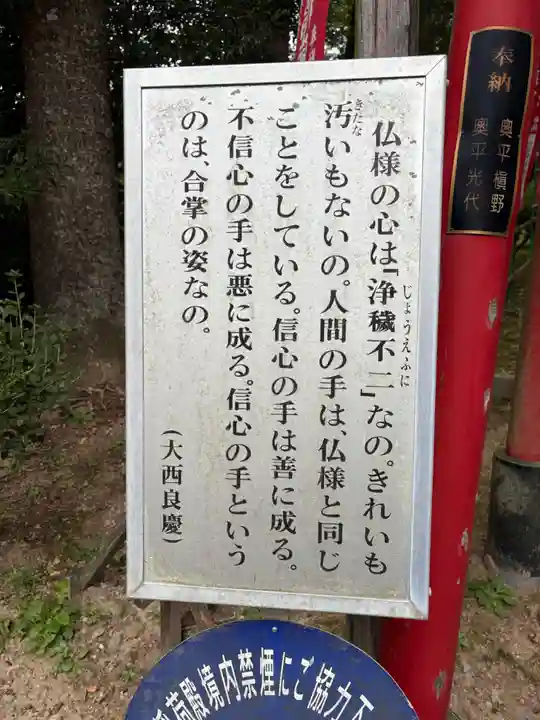 仏様の心は「浄穢不二」なの。きれいも
じょうえふに
汚いもないの。人間の手は、仏様と同じ
きたな
ことをしている。信心の手は善に成る。
不信心の手は悪に成る。信心の手という
のは、合掌の姿なの。
(大西良慶)
奉納
奥平槇野
奥平光代
荷殿境内禁煙にご協力下